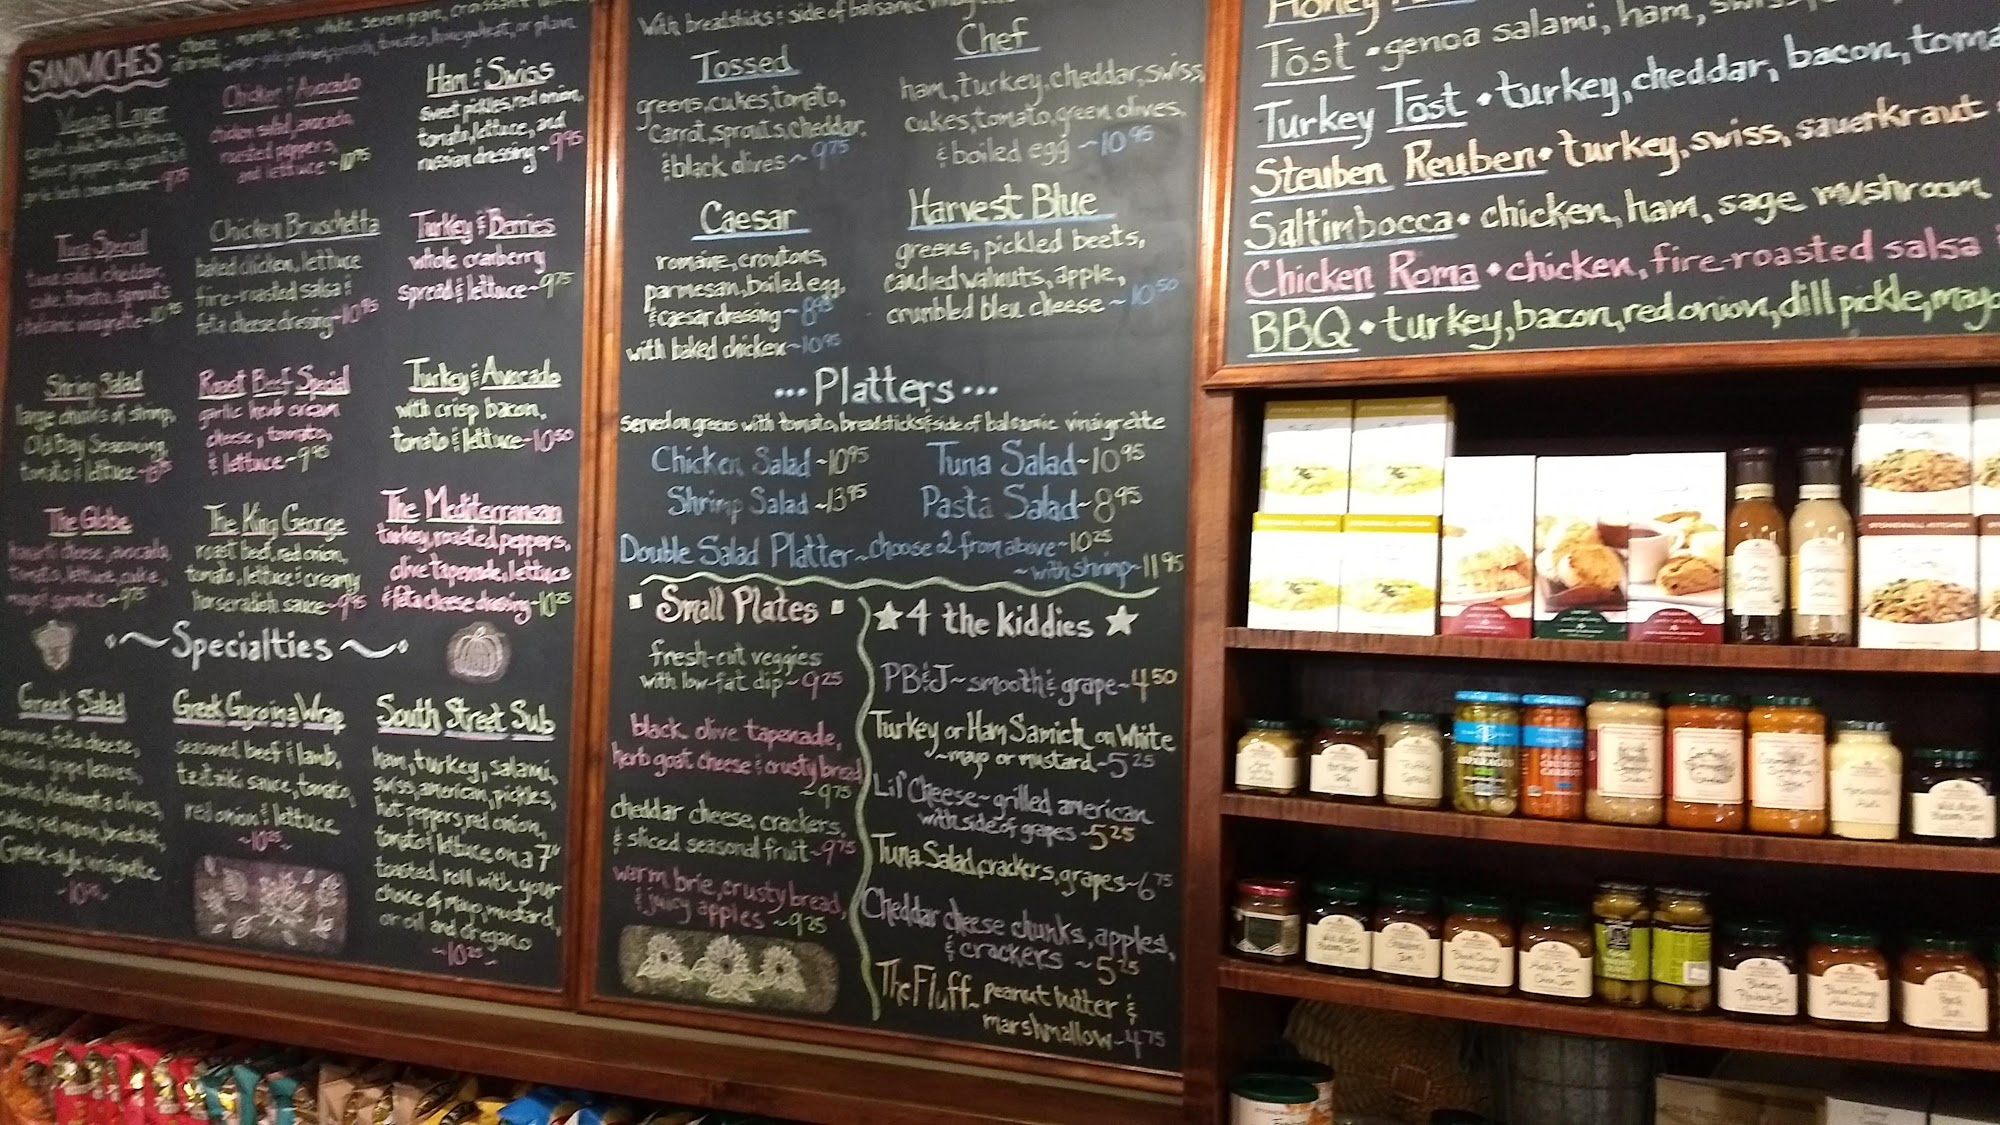 SANDWICHES
choice of bread
white, seven grain, croissant
Veggie Layer
carrot, cuke, tomato, lettuce,
sweet peppers, sprouts &
9 75
Chicken & Avocado
chicken salad, avocado,
roasted peppers,
and lettuce ~ 10 95
Ham & Swiss
sweet pickles, red onion,
tomato, lettuce, and
russian dressing ~ 9 95
Tuna Special
tuna salad, cheddar,
cuke, tomato, sprouts
& balsamic vinaigrette ~ 10 95
Chicken Bruschetta
baked chicken, lettuce
fire-roasted salsa &
feta cheese dressing ~ 10 95
Turkey & Berries
whole cranberry
spread & lettuce ~ 9 75
Shrimp Salad
large chunks of shrimp,
Old Bay Seasoning,
tomato & lettuce ~
Roast Beef Special
garlic herb cream
cheese, tomato,
& lettuce ~ 9 95
Turkey & Avocado
with crisp bacon,
tomato & lettuce ~ 10 50
The Globe
havarti cheese, avocado,
tomato, lettuce, cuke,
mayo & sprouts ~ 9 75
The King George
roast beef, red onion,
tomato, lettuce & creamy
horseradish sauce ~ 9 95
The Mediterranean
turkey, roasted peppers,
olive tapenade, lettuce
& feta cheese dressing ~ 10 25
~ Specialties ~
Greek Salad
romaine, feta cheese,
stuffed grape leaves,
tomato, Kalamata olives,
cukes, red onion, breadstick,
Greek-style vinaigrette
Greek Gyro in a Wrap
seasoned beef & lamb,
tzatziki sauce, tomato,
red onion & lettuce
~ 10 25 ~
South Street Sub
ham, turkey, salami,
swiss, american, pickles,
hot peppers, red onion,
tomato & lettuce on a 7"
toasted roll with your
choice of mayo, mustard,
or oil and oregano
~ 10 25 ~
With breadsticks & side of balsamic
Tossed
greens, cukes, tomato,
carrot, sprouts, cheddar,
& black olives ~ 9 75
Chef
ham, turkey, cheddar, swiss,
cukes, tomato, green olives,
& boiled egg ~ 10 95
Caesar
romaine, croutons,
parmesan, boiled egg,
& caesar dressing ~ 8 95
with baked chicken ~ 10 95
Harvest Blue
greens, pickled beets,
candied walnuts, apple,
crumbled bleu cheese ~ 10 50
... Platters ...
served on greens with tomato, breadsticks & side of balsamic vinaigrette
Chicken Salad ~ 10 95
Tuna Salad ~ 10 95
Shrimp Salad ~ 13 95
Pasta Salad ~ 8 95
Double Salad Platter ~ choose 2 from above ~ 10 25
~ with shrimp ~ 11 95
Small Plates
fresh-cut veggies
with low-fat dip ~ 9 25
black olive tapenade,
herb goat cheese & crusty bread
~ 9 75
cheddar cheese, crackers,
& sliced seasonal fruit ~ 9 75
warm brie, crusty bread,
& juicy apples ~ 9 25
★ 4 the kiddies ★
PB&J ~ smooth & grape ~ 4 50
Turkey or Ham Samich on White
~ mayo or mustard ~ 5 25
Lil' Cheese ~ grilled american
with side of grapes ~ 5 25
Tuna Salad, crackers, grapes ~ 6 75
Cheddar cheese chunks, apples,
& crackers ~ 5 25
The Fluff ~ peanut butter &
marshmallow ~ 4 75
Honey
Tōst • genoa salami, ham,
Turkey Tōst • turkey, cheddar, bacon,
Steuben Reuben • turkey, swiss, sauerkraut
Saltimbocca • chicken, ham, sage mushroom
Chicken Roma • chicken, fire-roasted salsa
BBQ • turkey, bacon, red onion, dill pickle, mayo
STONEWALL KITCHEN